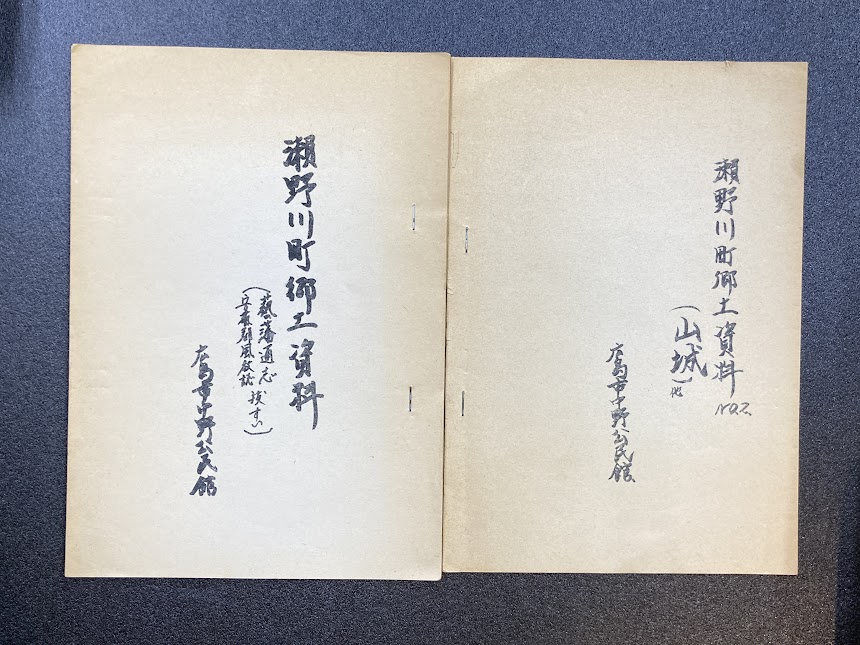 瀬野川町郷土資料 NO2.
（山城）他
広島市中野公民館
瀬野川町郷土資料
（藝藩通志
抜すい）
広島市中野公民館